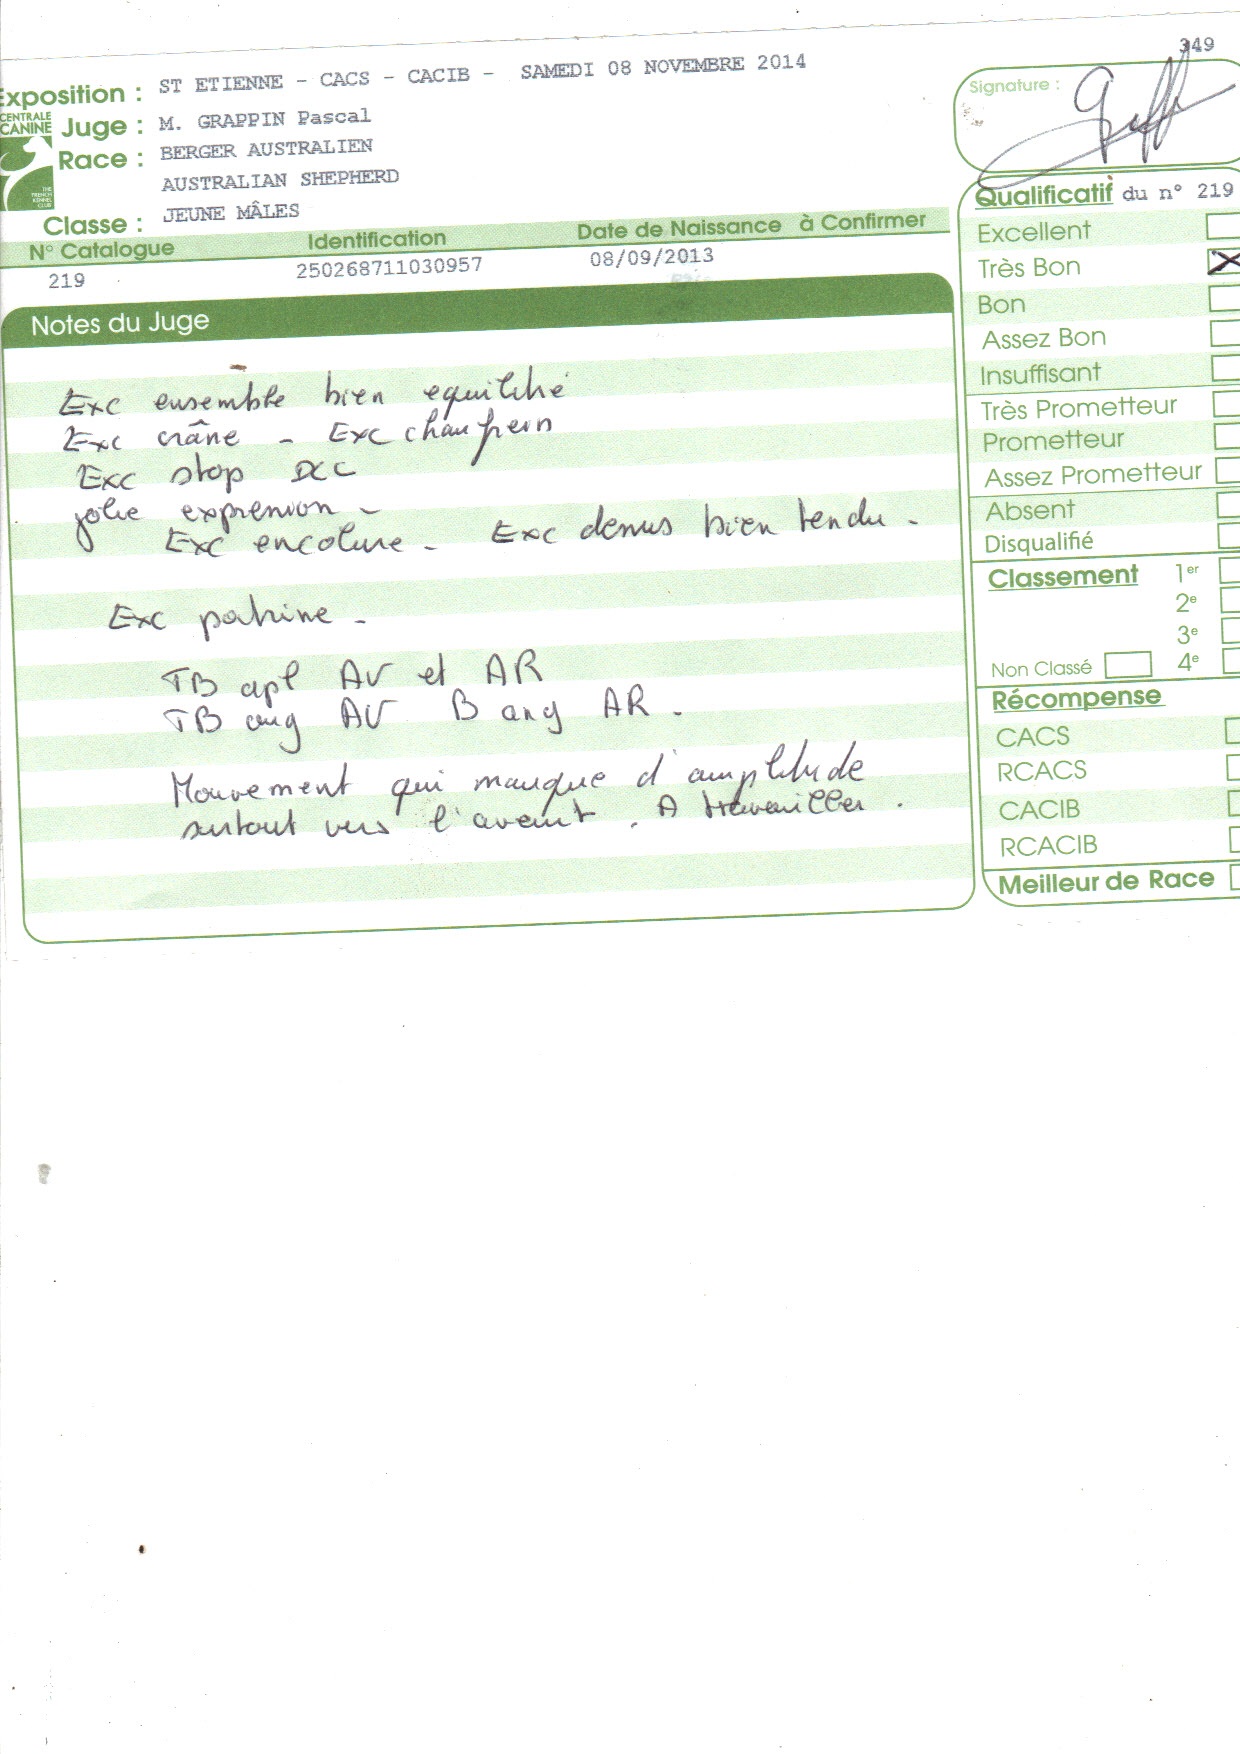 349
Exposition : ST ETIENNE - CACS - CACIB - SAMEDI 08 NOVEMBRE 2014
Signature :
CENTRALE
CANINE
Juge : M. GRAPPIN Pascal
Race : BERGER AUSTRALIEN
AUSTRALIAN SHEPHERD
THE
FRENCH
KENNEL
CLUB
Classe : JEUNE MÂLES
N° Catalogue Identification Date de Naissance à Confirmer
219 250268711030957 08/09/2013
Notes du Juge
Exc ensemble bien equilibré
Exc crâne - Exc chanfrein
Exc stop
jolie expression -
Exc encolure - Exc dessus bien tendu -
Exc poitrine -
TB apl AV et AR
TB ang AV B ang AR.
Mouvement qui manque d'amplitude
surtout vers l'avant. A travailler.
Qualificatif du n° 219
Excellent
Très Bon X
Bon
Assez Bon
Insuffisant
Très Prometteur
Prometteur
Assez Prometteur
Absent
Disqualifié
Classement 1er
2e
3e
Non Classé 4e
Récompense
CACS
RCACS
CACIB
RCACIB
Meilleur de Race